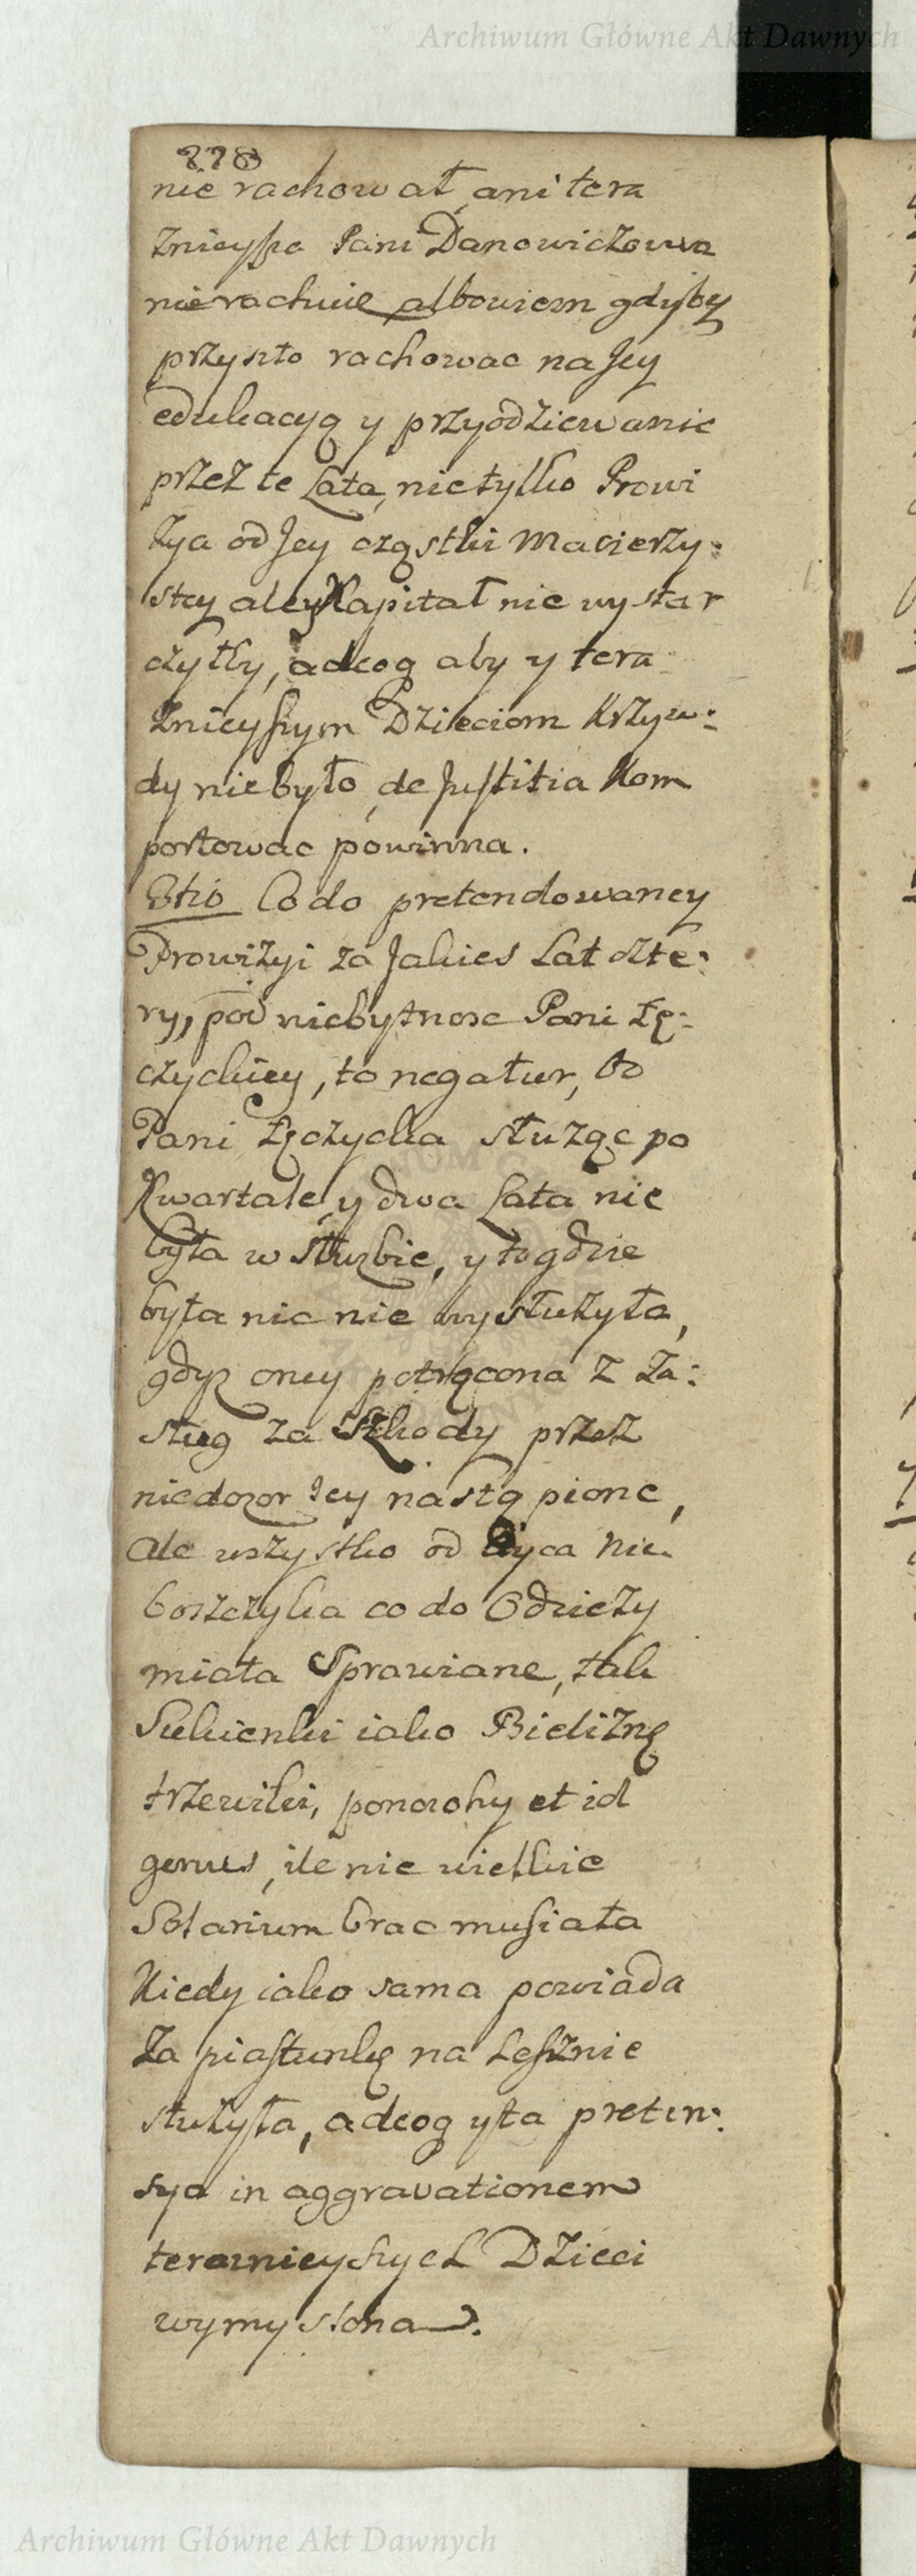 Archiwum Główne Akt Dawnych
278
nie rachował, ani tera
znieysza Pani Danowiczowa
nie rachuie albowiem gdyby
przyszło rachowac na Jey
edukacyą y przyodziewanie
przez te Lata, nie tylko Prowi
zya od Jey cząstki Macierzy:
stey ale y Kapitał nie wystar
czyłby, adeoq aby y tera
znieyszym Dzieciom Krzyw:
dy nie było, de Justitia Kom
portowac powinna.
8tio Co do pretendowaney
Prowizyi za Jakies Lat czte:
ry, pod niebytnosc Pani Łę:
czyckiey, to negatur, bo
Pani Łęczycka słuząc po
Kwartale y dwa Lata nie
była w Służbie, y to gdzie
była nic nie wysłużyła,
gdyz oney potrącona z Za:
sług za Szkody przez
niedozor Jey nastąpione,
Ale wszystko od Oyca Nie
boszczyka co do Odzieży
miała Sprawiane, tak
Sukienki iako Bieliznę
trzewiki, ponczohy et id
genus, ile nie wielkie
Solarium brac musiała
Kiedy iako sama powiada
Za piastunkę na Lesznie
służyła, adeoq y ta preten:
sya in aggravationem
teraznieyszych Dzieci
wymyslona.
Archiwum Główne Akt Dawnych